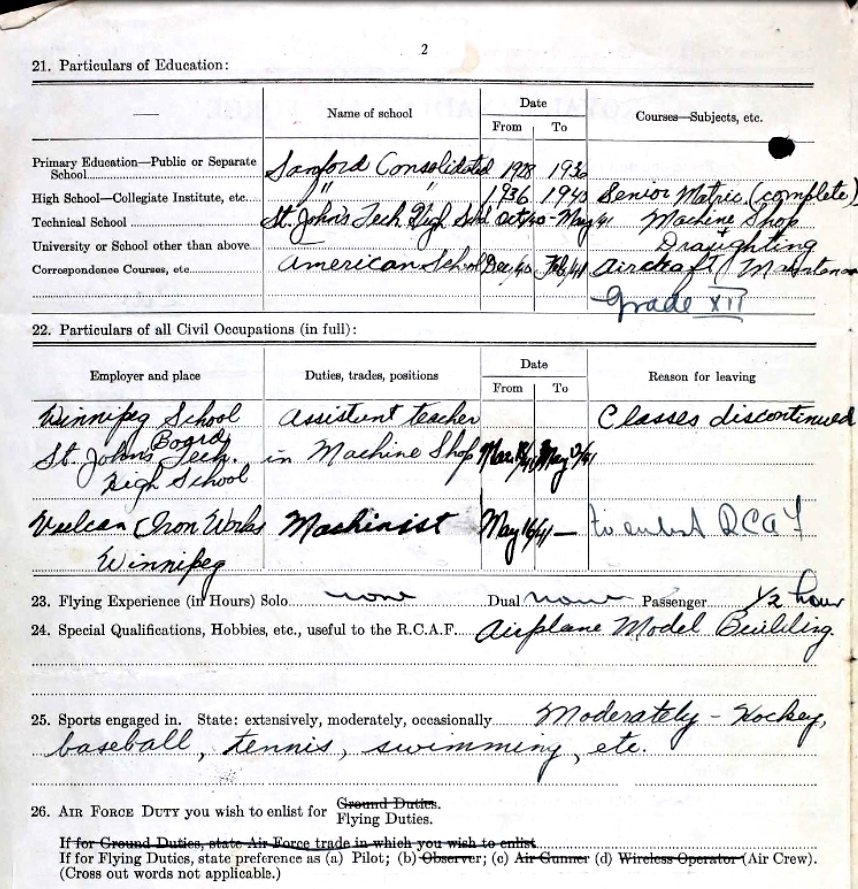 2
21. Particulars of Education:
— Name of school Date Courses—Subjects, etc.
From To
Primary Education—Public or Separate
School Sanford Consolidated 1928 1936
High School—Collegiate Institute, etc. " " 1936 1940 Senior Matric (complete)
Technical School St. John's Tech. High Schl Oct/40 - May/41 Machine Shop
University or School other than above Draughting
Correspondence Courses, etc American School Dec/40 Feb/41 Aircraft
Grade XII
22. Particulars of all Civil Occupations (in full):
Employer and place Duties, trades, positions Date Reason for leaving
From To
Winnipeg School Assistant teacher Classes discontinued
Board
St. John's Tech. in Machine Shop
High School
Vulcan Iron Works Machinist May 16/41 — to enlist RCAF
Winnipeg
23. Flying Experience (in Hours) Solo none Dual none Passenger 1/2 hour
24. Special Qualifications, Hobbies, etc., useful to the R.C.A.F. Airplane Model Building.
25. Sports engaged in. State: extensively, moderately, occasionally Moderately - Hockey,
baseball, tennis, swimming, etc.
26. AIR FORCE DUTY you wish to enlist for Ground Duties.
Flying Duties.
If for Ground Duties, state Air Force trade in which you wish to enlist
If for Flying Duties, state preference as (a) Pilot; (b) Observer; (c) Air Gunner (d) Wireless Operator (Air Crew).
(Cross out words not applicable.)